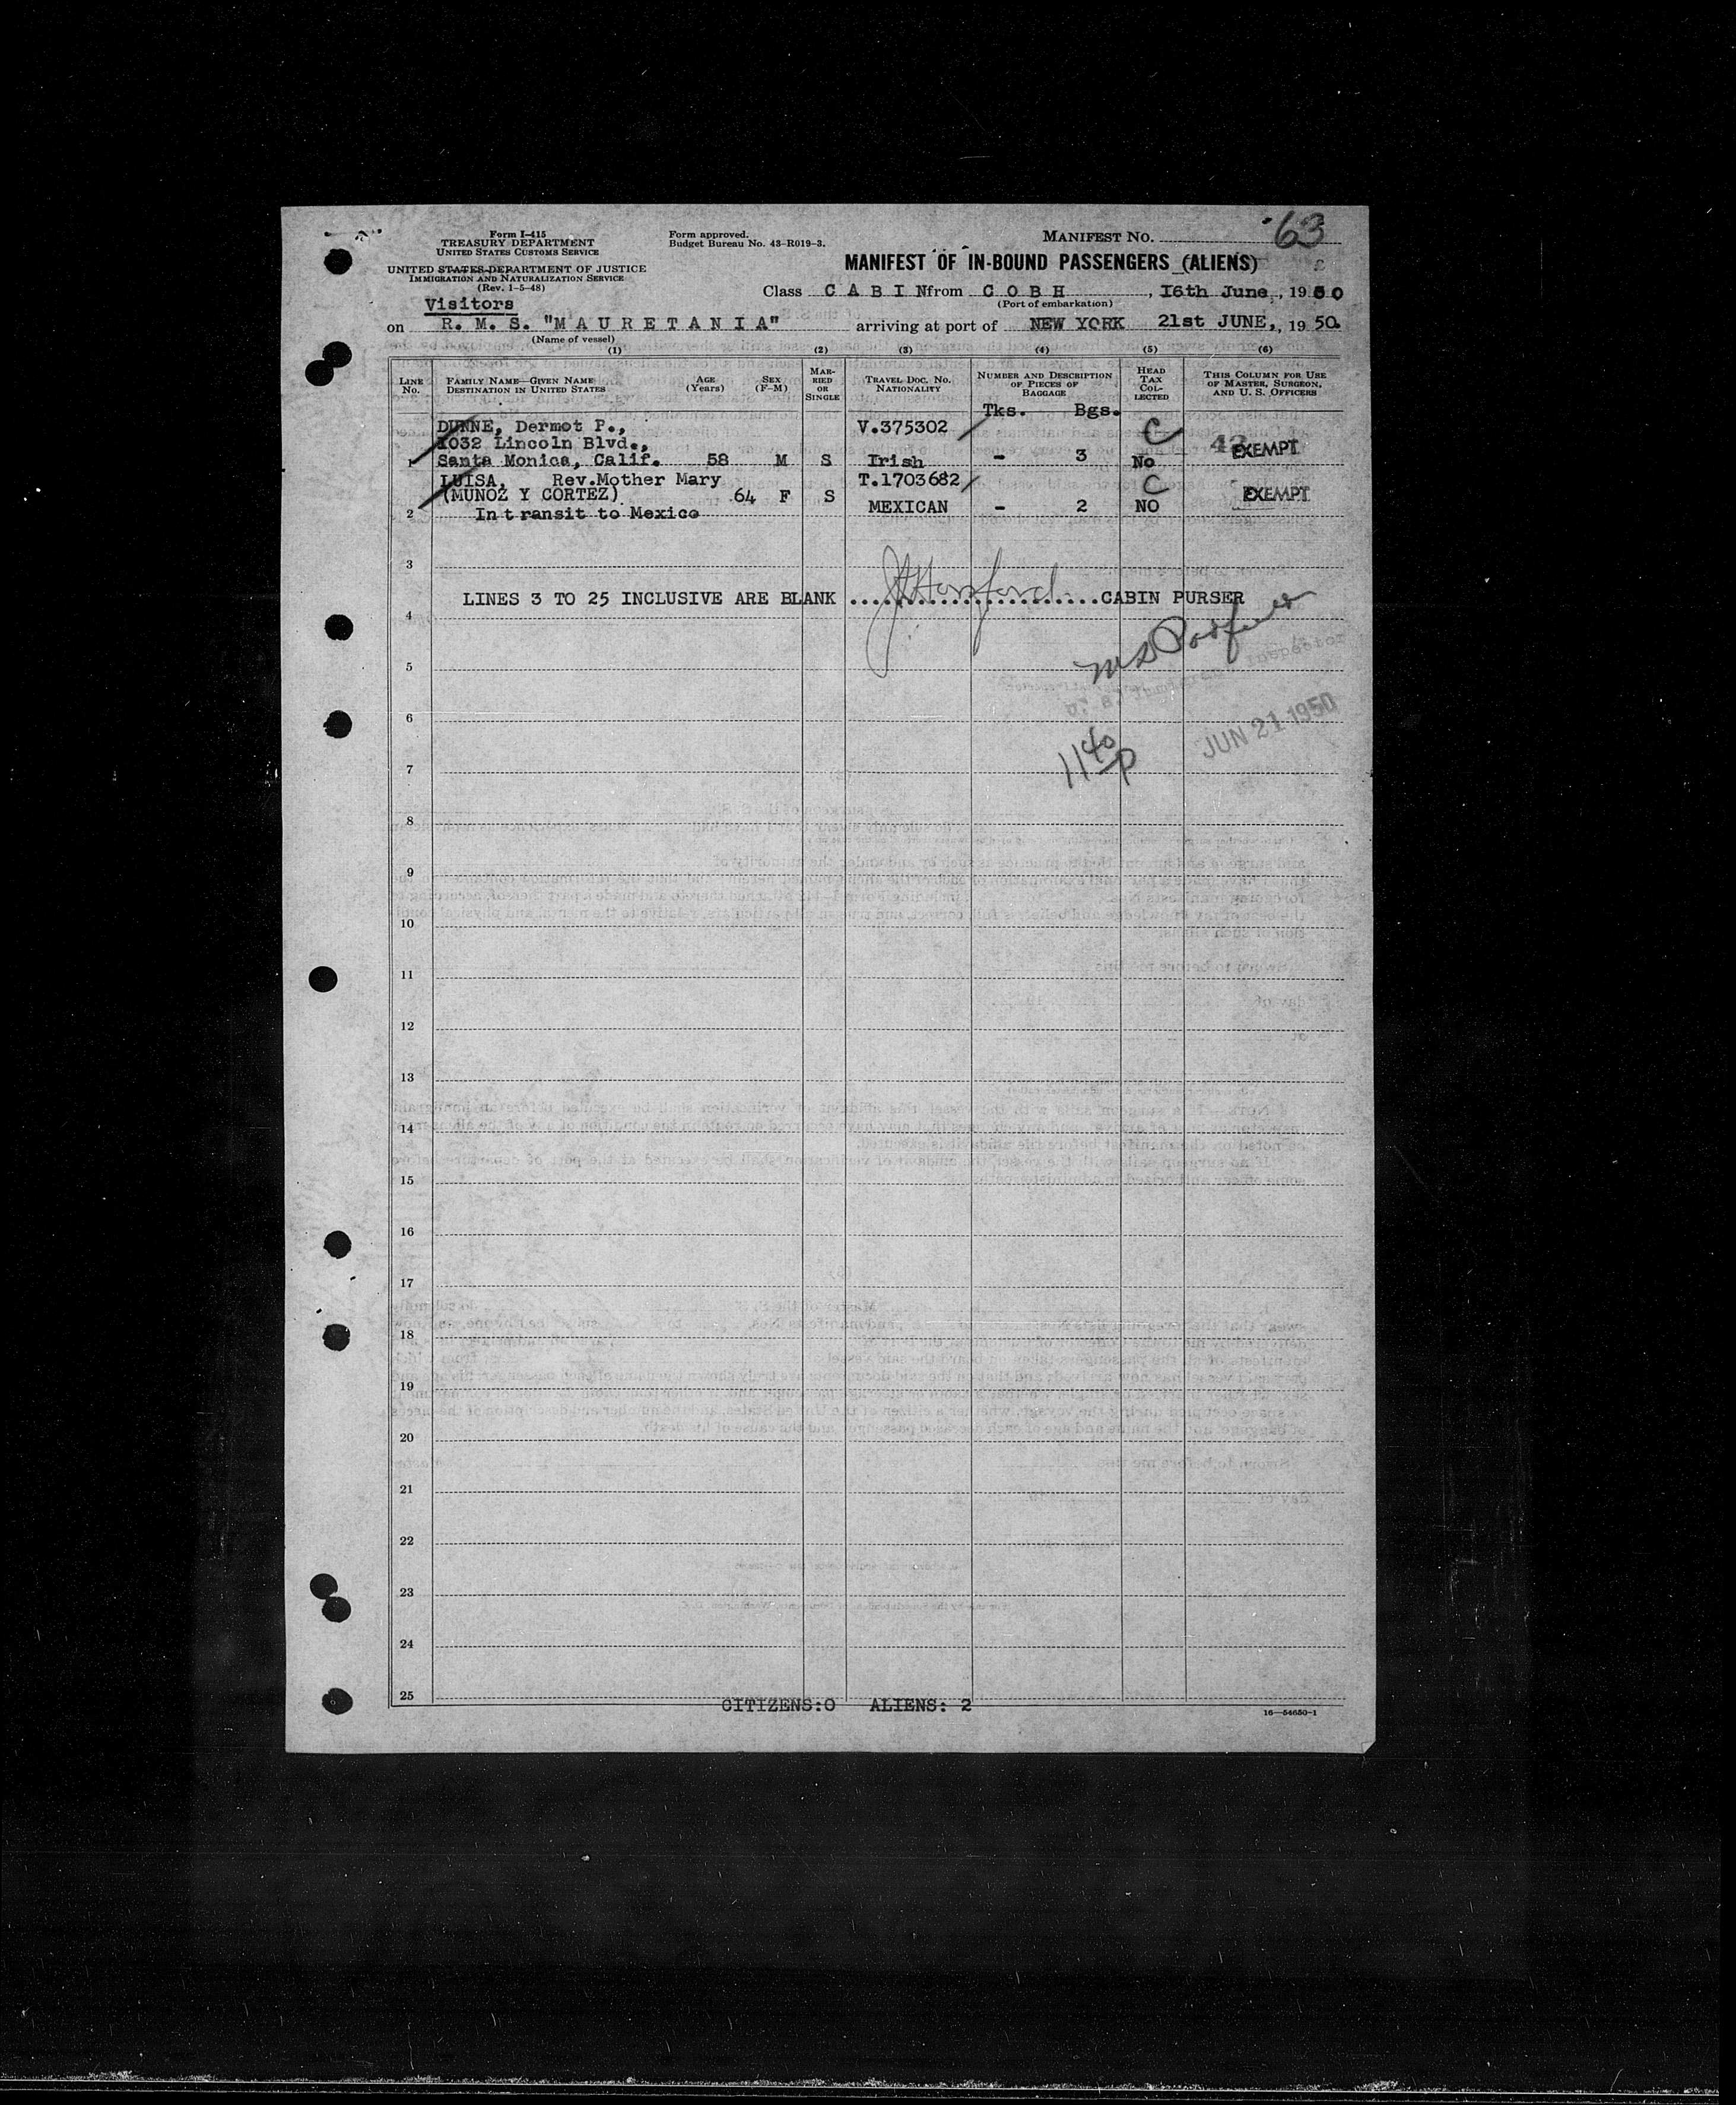 63
Form I-415
TREASURY DEPARTMENT
UNITED STATES CUSTOMS SERVICE
Form approved.
Budget Bureau No. 43-R019-3.
MANIFEST NO.
UNITED STATES DEPARTMENT OF JUSTICE
IMMIGRATION AND NATURALIZATION SERVICE
(Rev. 1-5-48)
MANIFEST OF IN-BOUND PASSENGERS (ALIENS)
Visitors
Class C A B I N from C O B H, 16th June, 1950
(Port of embarkation)
on R. M. S. "M A U R E T A N I A" arriving at port of NEW YORK 21st JUNE, 1950.
(Name of vessel)
(1) (2) (3) (4) (5) (6)
LINE NO. FAMILY NAME—GIVEN NAME DESTINATION IN UNITED STATES AGE (Years) SEX (F-M) MARRIED OR SINGLE TRAVEL DOC. NO. NATIONALITY NUMBER AND DESCRIPTION OF PIECES OF BAGGAGE HEAD TAX COLLECTED THIS COLUMN FOR USE OF MASTER, SURGEON, AND U. S. OFFICERS
Tks. Bgs.
DUNNE, Dermot P., V.375302 C
1032 Lincoln Blvd., 42 EXEMPT
1 Santa Monica, Calif. 58 M S Irish - 3 No
LUISA, Rev.Mother Mary T.1703682 C
(MUNOZ Y CORTEZ) 64 F S EXEMPT
2 In transit to Mexico MEXICAN - 2 NO
3
LINES 3 TO 25 INCLUSIVE ARE BLANK ........................CABIN PURSER
4
5
6
JUN 21 1950
11 40 p
7
8
9
10
11
12
13
14
15
16
17
18
19
20
21
22
23
24
25
CITIZENS:0 ALIENS: 2
16—54650-1